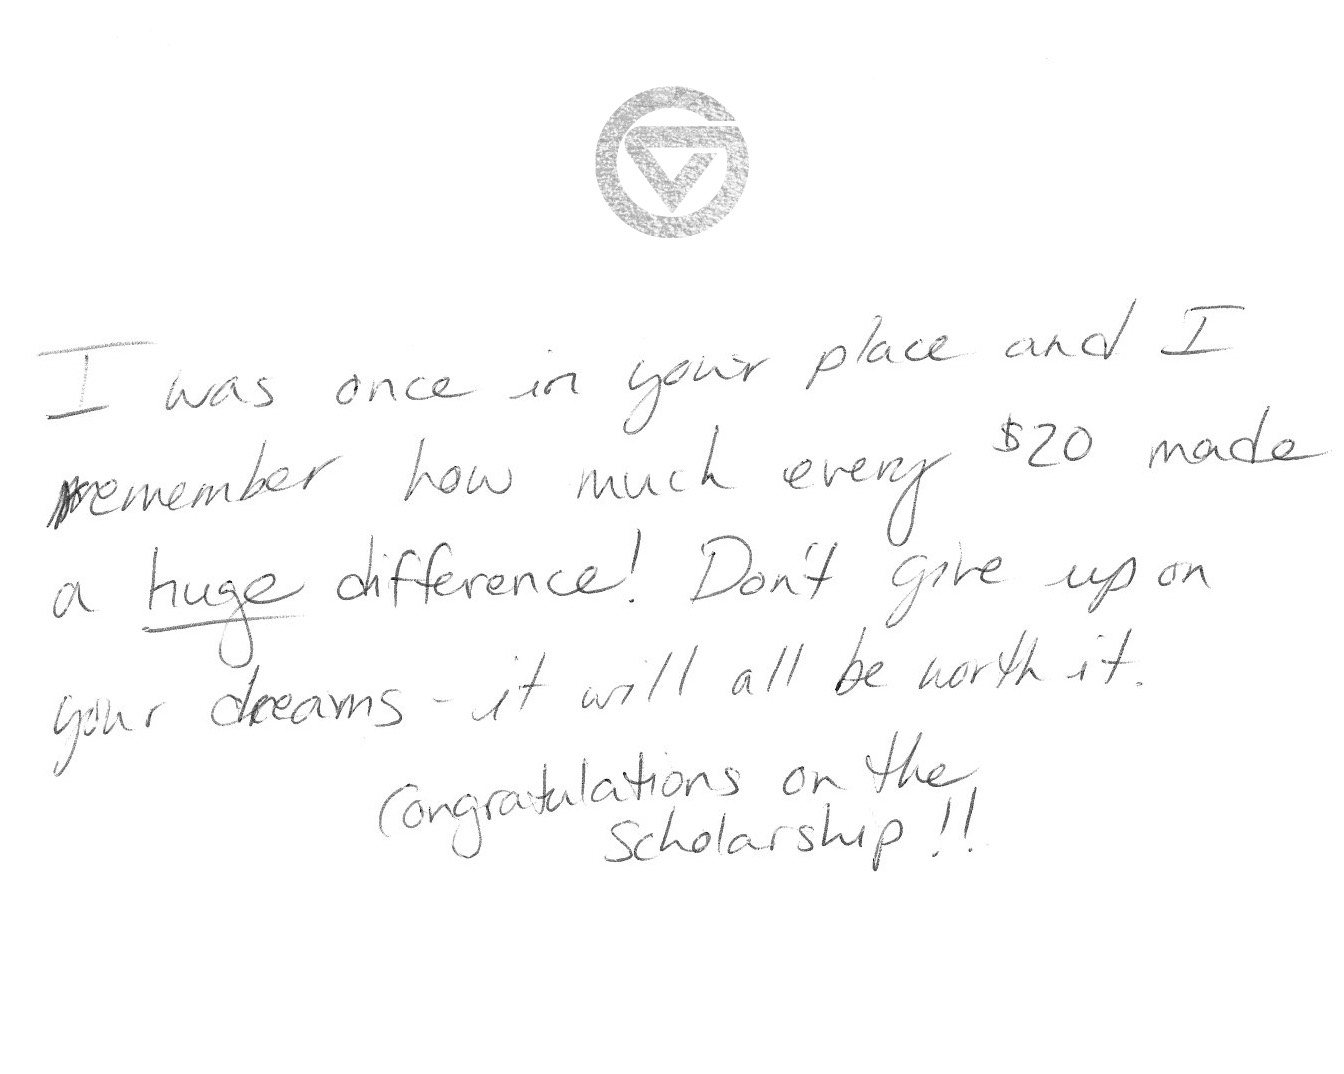 I was once in your place and I
remember how much every $20 made
a huge difference! Don't give up on
your dreams - it will all be worth it.
Congratulations on the
Scholarship!!